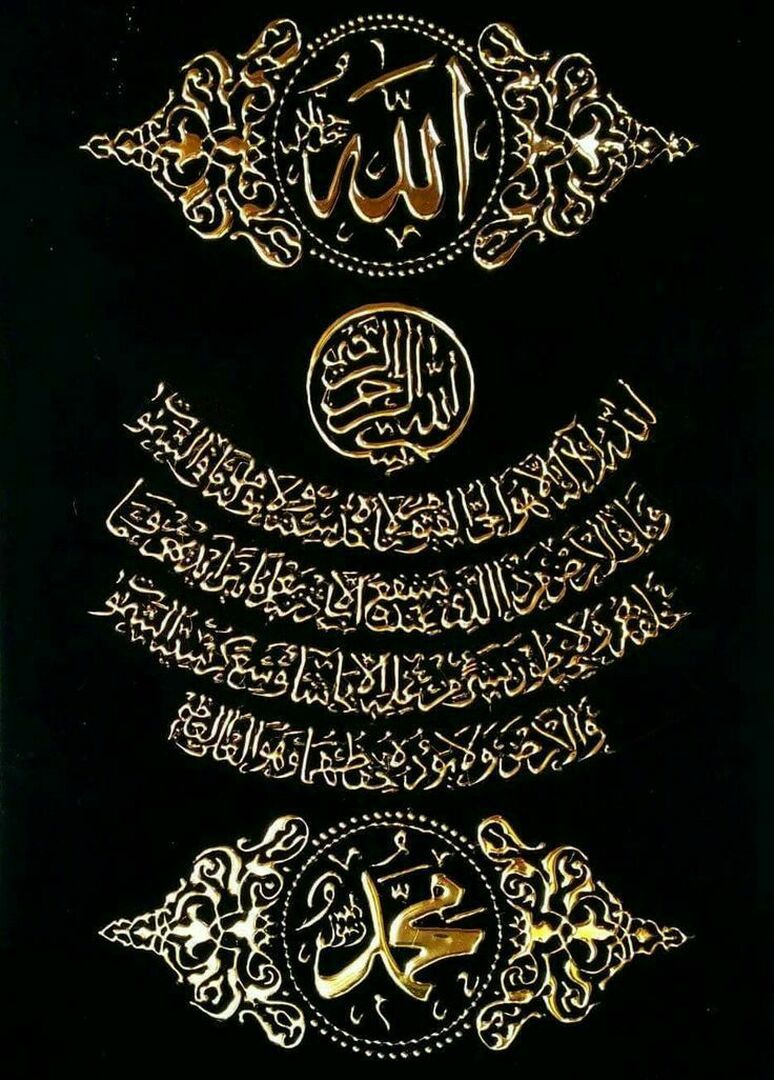 الله جل جلاله
بسم الله الرحمن الرحيم
الله لا اله الا هو الحي القيوم لا تاخذه سنة ولا نوم له ما في السموات
وما في الارض من ذا الذي يشفع عنده الا باذنه يعلم ما بين ايديهم وما
خلفهم ولا يحيطون بشيء من علمه الا بما شاء وسع كرسيه السموات
والارض ولا يؤده حفظهما وهو العلي العظيم
محمد